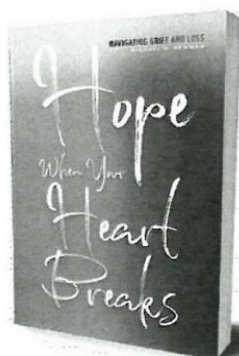 NAVIGATING GRIEF AND LOSS
MICHAEL W. NEWMAN
Hope
When Your
Heart
Breaks